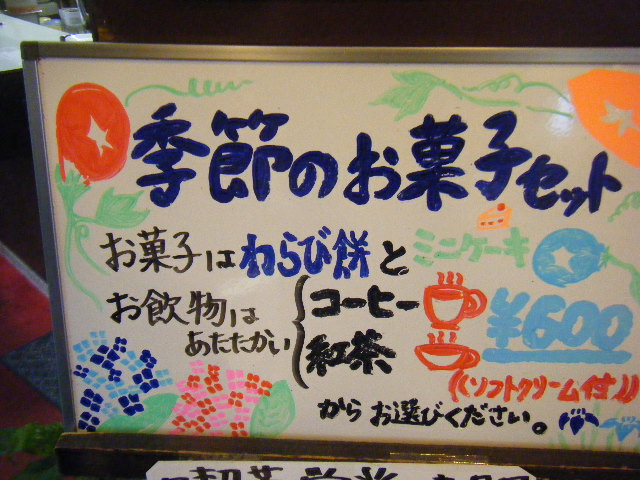 季節のお菓子セット
お菓子はわらび餅とミニケーキ
お飲物はあたたかい
コーヒー
紅茶
¥600
((ソフトクリーム付))
からお選びください。